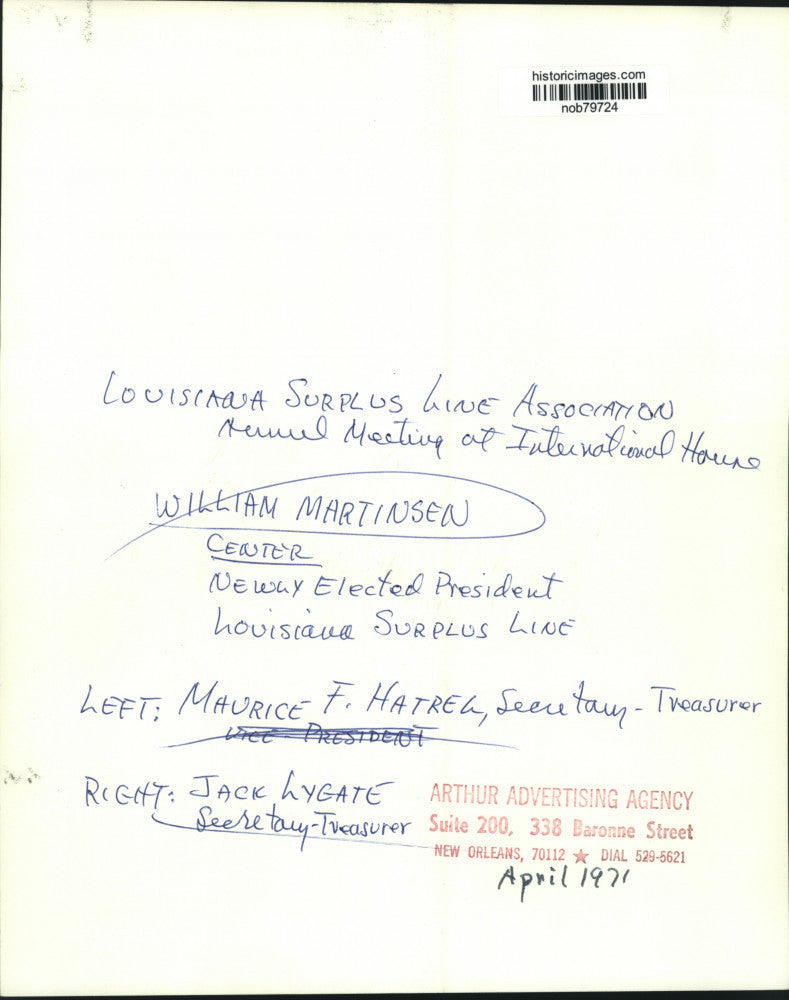 historicimages.com
nob79724
LOUISIANA SURPLUS LINE ASSOCIATION
Annual Meeting at International House
WILLIAM MARTINSEN
CENTER
NEWLY Elected President
Louisiana SURPLUS LINE
LEFT: MAURICE F. HATREL, Secretary-Treasurer
VICE-PRESIDENT
RIGHT: JACK LYGATE
Secretary-Treasurer
ARTHUR ADVERTISING AGENCY
Suite 200, 338 Baronne Street
NEW ORLEANS, 70112 ★ DIAL 529-5621
April 1971